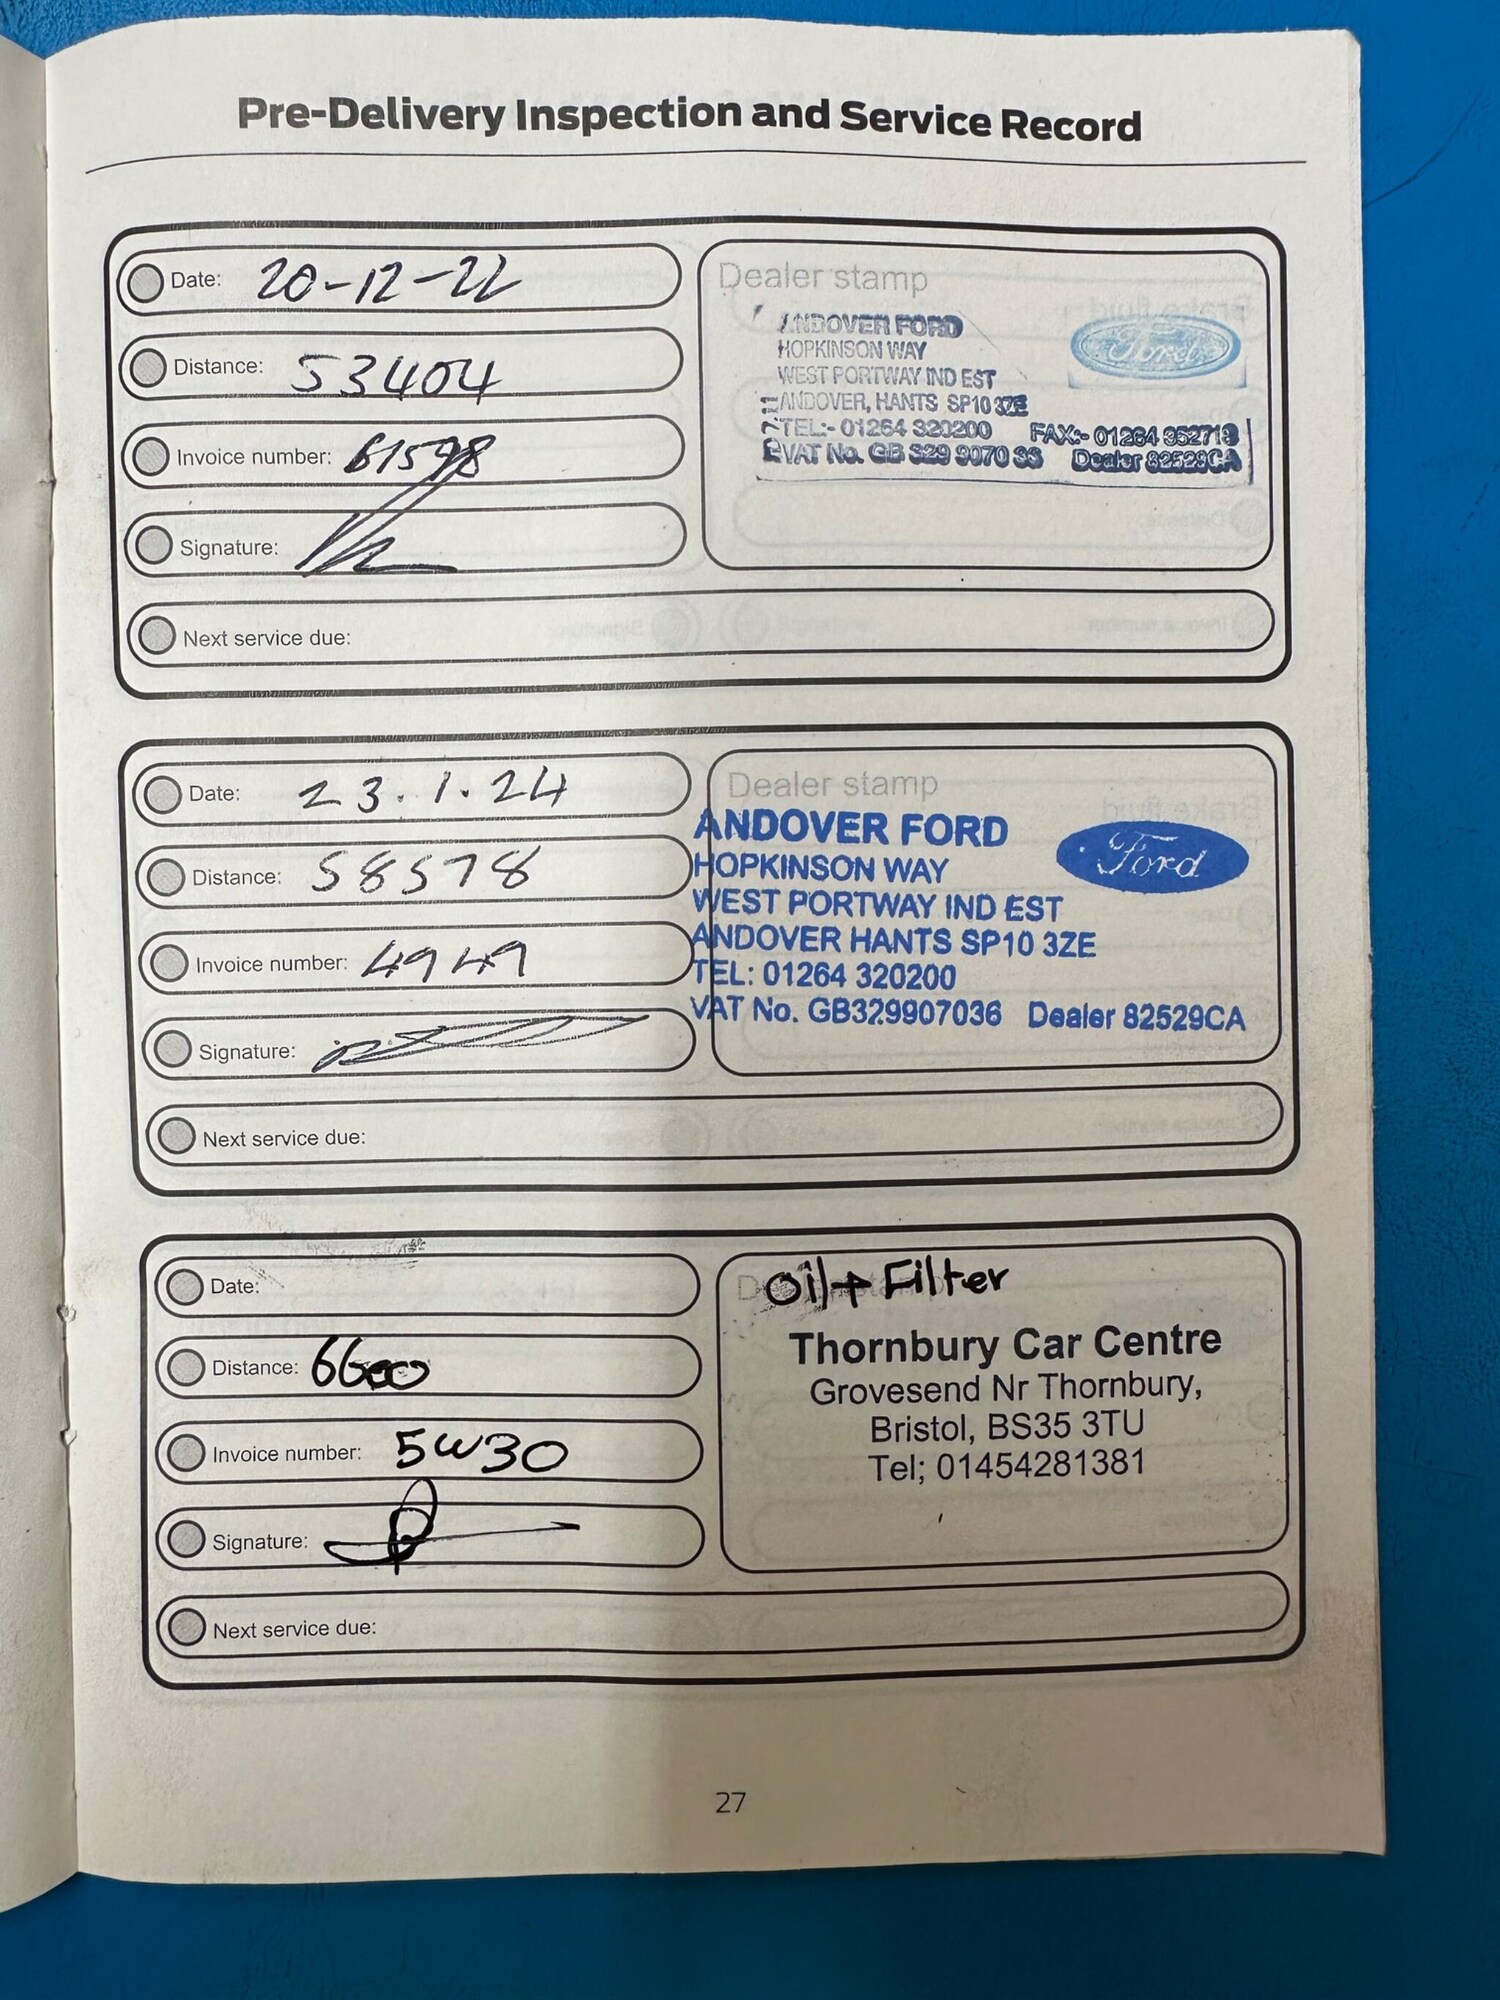 Pre-Delivery Inspection and Service Record
Date: 20-12-22
Distance: 53404
Invoice number: 61598
Signature:
Next service due:
Dealer stamp
ANDOVER FORD
HOPKINSON WAY
WEST PORTWAY IND EST
ANDOVER, HANTS SP10 3ZE
TEL:- 01264 320200 FAX:- 01264 352713
VAT No. GB 329 9070 36 Dealer 82529CA
Ford
Date: 23.1.24
Distance: 58578
Invoice number: 4949
Signature:
Next service due:
Dealer stamp
ANDOVER FORD
HOPKINSON WAY
WEST PORTWAY IND EST
ANDOVER HANTS SP10 3ZE
TEL: 01264 320200
VAT No. GB329907036 Dealer 82529CA
Ford
Date:
Distance: 66000
Invoice number: 5W30
Signature:
Next service due:
Oil + Filter
Thornbury Car Centre
Grovesend Nr Thornbury,
Bristol, BS35 3TU
Tel; 01454281381
27